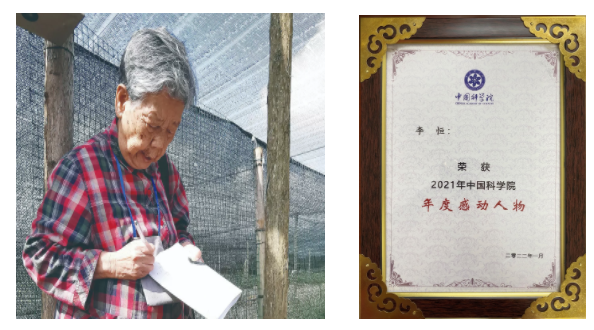 中国科学院
李 恒：
荣 获
2021年中国科学院
年度感动人物
二零二二年一月